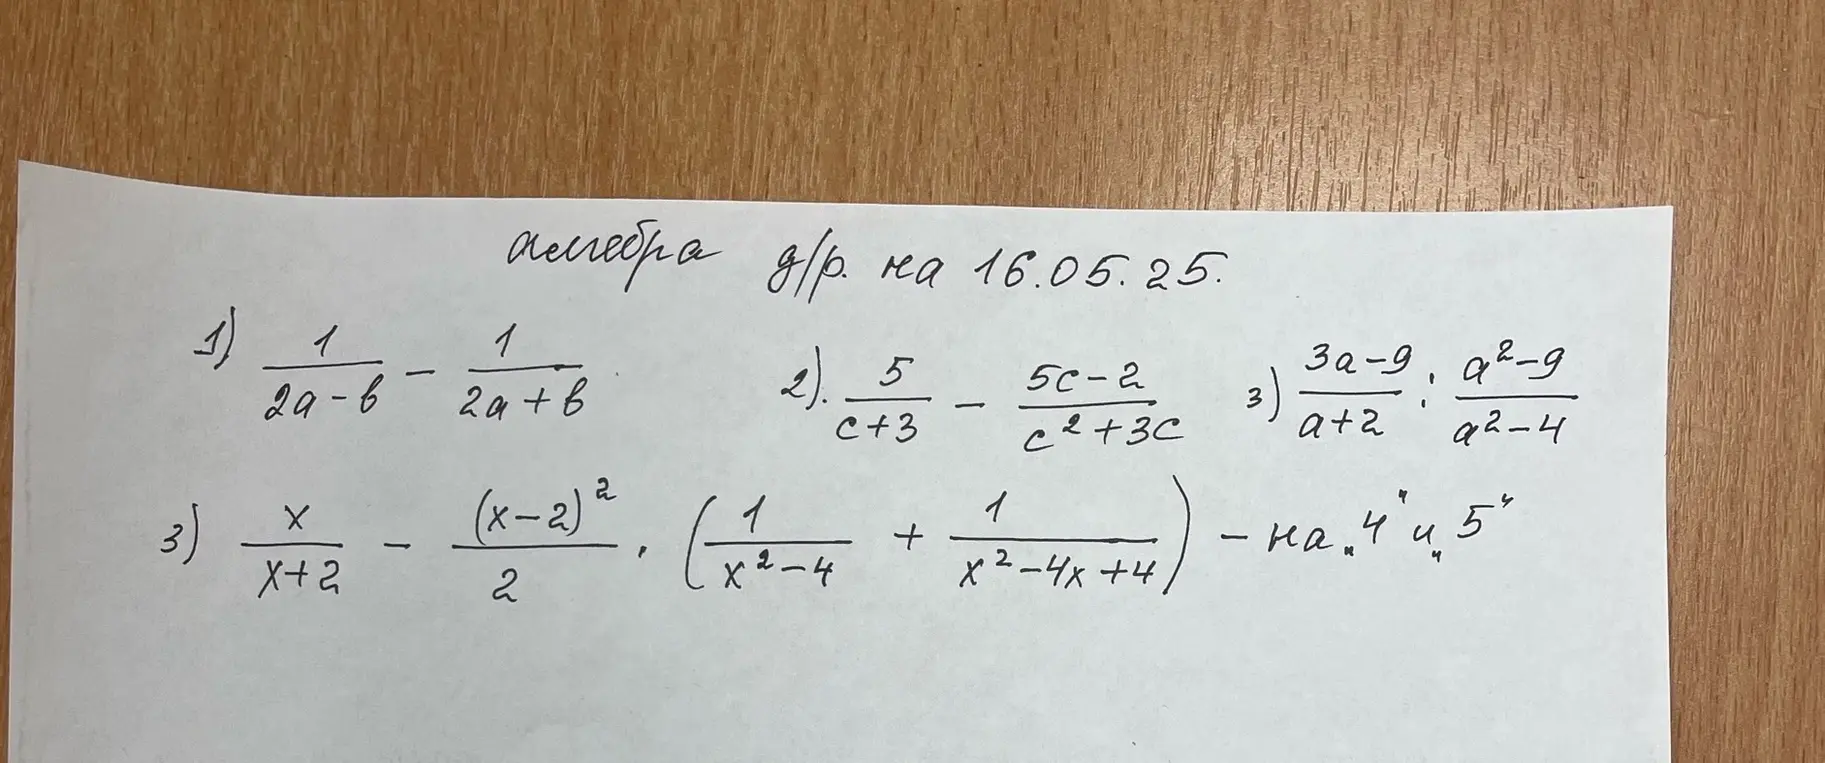 алгебра д/р. на 16.05.25.
1) 1/(2a-b) - 1/(2a+b) 2). 5/(c+3) - (5c-2)/(c²+3c) 3) (3a-9)/(a+2) : (a²-9)/(a²-4)
3) x/(x+2) - (x-2)²/2 · (1/(x²-4) + 1/(x²-4x+4)) - на „4" и „5"